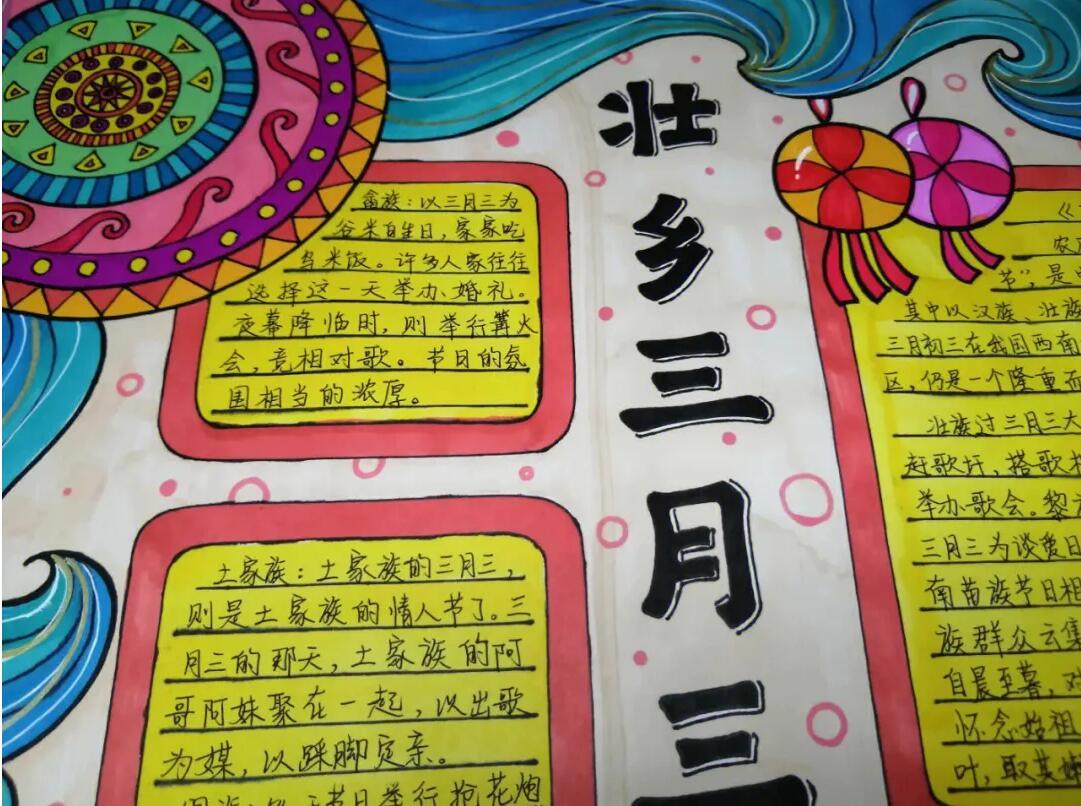 壮
乡
三
月
三
畲族：以三月三为
谷米的生日，家家吃
乌米饭。许多人家往往
选择这一天举办婚礼。
夜幕降临时，则举行篝火
会，竞相对歌。节日的氛
围相当的浓厚。
土家族：土家族的三月三，
则是土家族的情人节了。三
月三的那天，土家族的阿
哥阿妹聚在一起，以出歌
为媒，以踩脚定亲。
节日举行抢花炮
《
农
节"，是
其中以汉族、壮族
三月初三在我国西南
区，仍是一个隆重而
壮族过三月三大
赶歌圩，搭歌
举办歌会。黎
三月三为谈爱日
南苗族节日相
族群众云集
自晨至暮，对
怀念始祖
叶，取其